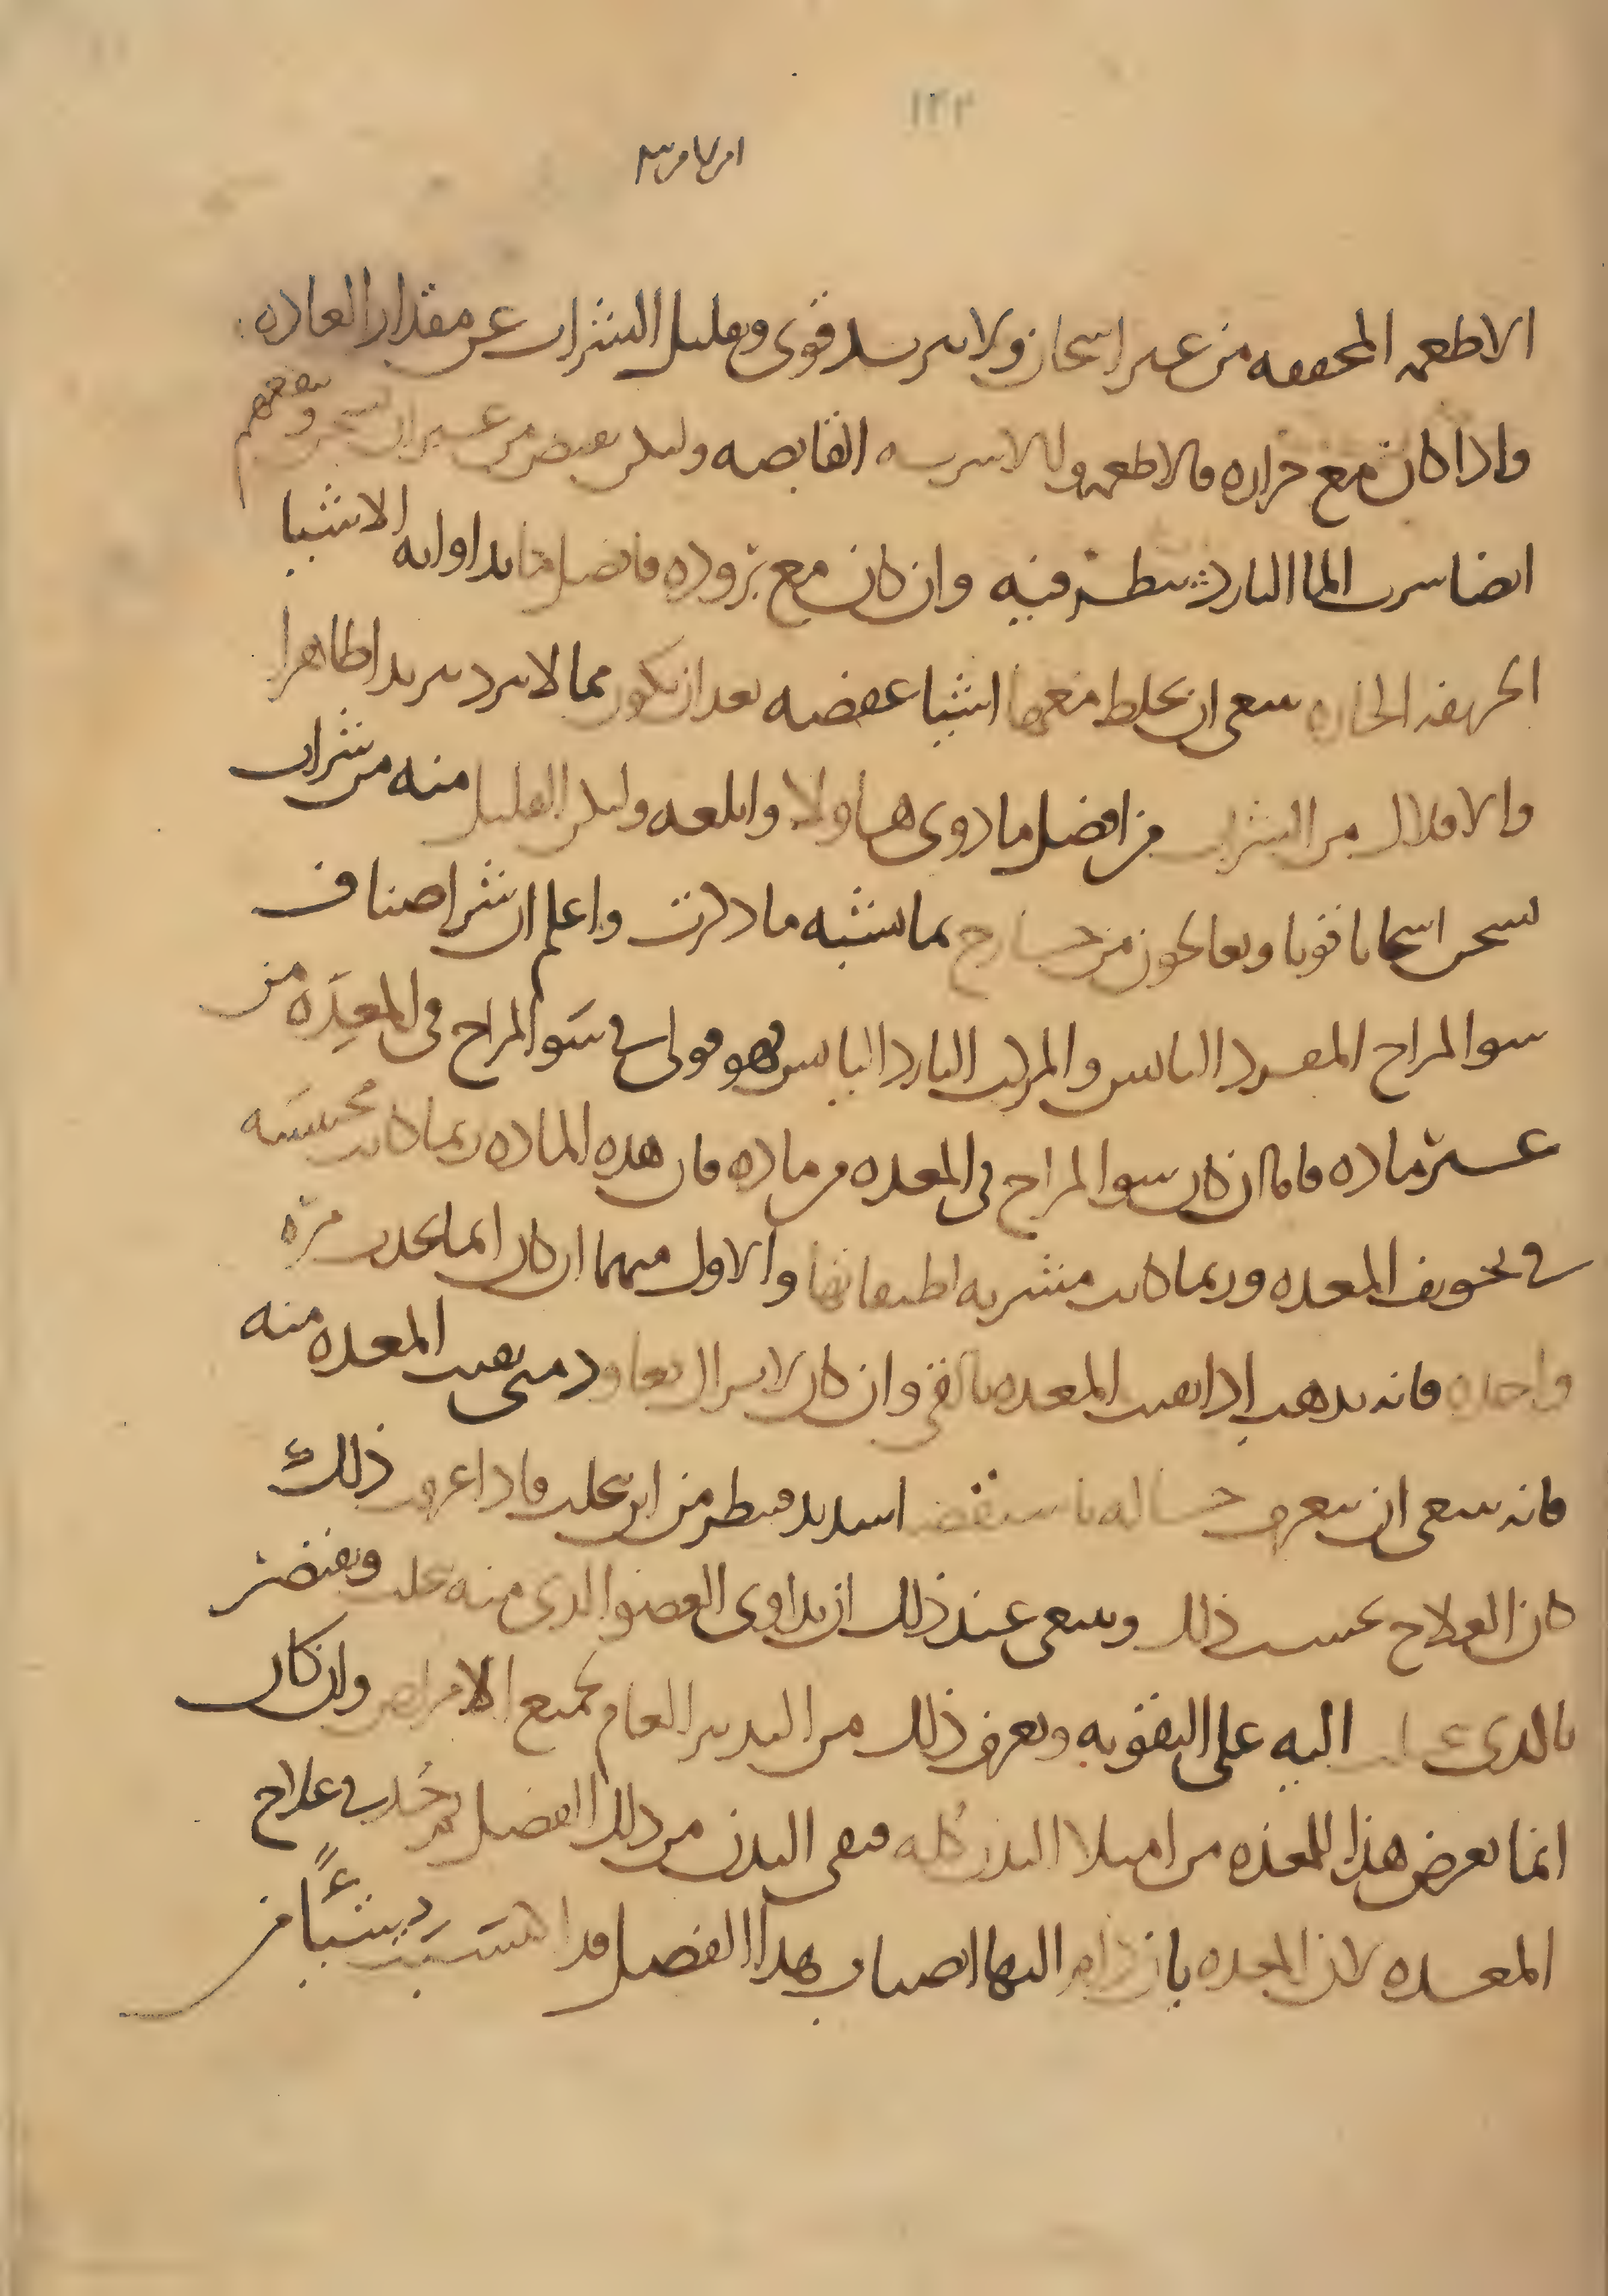 ١٢٢
الاطعمه المجففه من غير اسخان ولا تبريد قوى وتقليل الشراب عن مقدار العاده
واذا كان مع حراره فالاطعمه والاشربه القابضه وليكن بقبض من غير ان تسخن وينفعهم
ايضا شرب الما البارد بنظر فيه وان كان مع بروده فافضل ما تداوا به الاشيا
الحريفه الحاره ينبغى ان يخلط معها اشيا عفصه بعد ان تكون مما لا تبرد تبريدا ظاهرا
والاقلال من الشراب من افضل ما دوى به هاولا وابلغه وليكن القليل منه من شراب
يسخن اسخانا قويا ويعالجون من خارج بما يشبه ما ذكرت واعلم ان شر اصناف
سو المزاج المفرد اليابس والمركب البارد اليابس فهو قولى فى سو المزاج فى المعده من
غير ماده فاما ان كان سو المزاج فى المعده من ماده فان هذه الماده ربما كانت محتبسه
فى تجويف المعده وربما كانت متشربه لطبقاتها والاول منهما ان كان انما يحدث مره
واحده فانه يذهب اذا نقيت المعده بالقى وان كان لا يزال يعاود متى نقيت المعده منه
فانه ينبغى ان يتعرف حاله باستقصا شديد فينظر من اين يحلب فاذا عرفت ذلك
كان العلاج بحسب ذلك وينبغى عند ذلك ان يداوى العضو الذى منه تحلب ويقتصر
بالذى تحلب اليه على التقويه وتعرف ذلك من التدبير العام لجميع الامراض وان كان
انما يعرض هذا للمعده من امتلا البدن كله فينقى البدن من ذلك الفضل ثم خذ فى علاج
المعده لان المعده بان دام اليها انصباب هذا الفضل قد اكتسبت ردياً شيئاً من